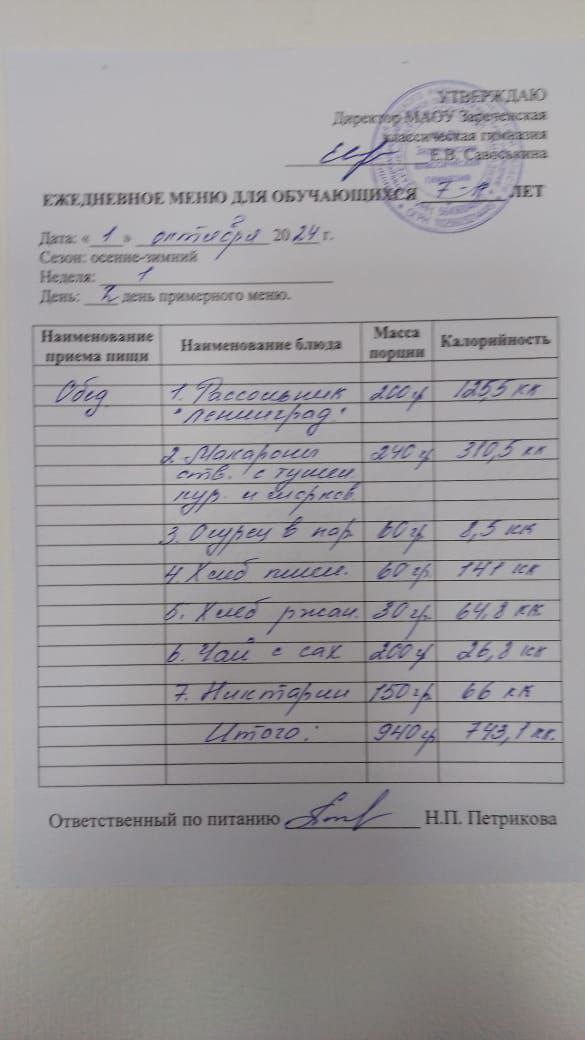 УТВЕРЖДАЮ
Директор МАОУ Зареченская
классическая гимназия
Е.В. Савоськина
ЕЖЕДНЕВНОЕ МЕНЮ ДЛЯ ОБУЧАЮЩИХСЯ 7-11 ЛЕТ
Дата: «1» октября 2024 г.
Сезон: осенне-зимний
Неделя: 1
День: 2 день примерного меню.
Наименование приема пищи Наименование блюда Масса порции Калорийность
Обед 1. Рассольник 200 г 125,5 кк
"Ленинград"
2. Макароны 240 г 310,5 кк
отв. с тушен
кур. и морков.
3. Огурец в пор 60 гр 8,5 кк
4. Хлеб пшен. 60 гр. 141 кк
5. Хлеб ржан. 30 гр. 64,8 кк
6. Чай с сах 200 г 26,8 кк
7. Никтарин 150 гр. 66 кк
Итого: 940 г. 743,1 кк.
Ответственный по питанию Н.П. Петрикова